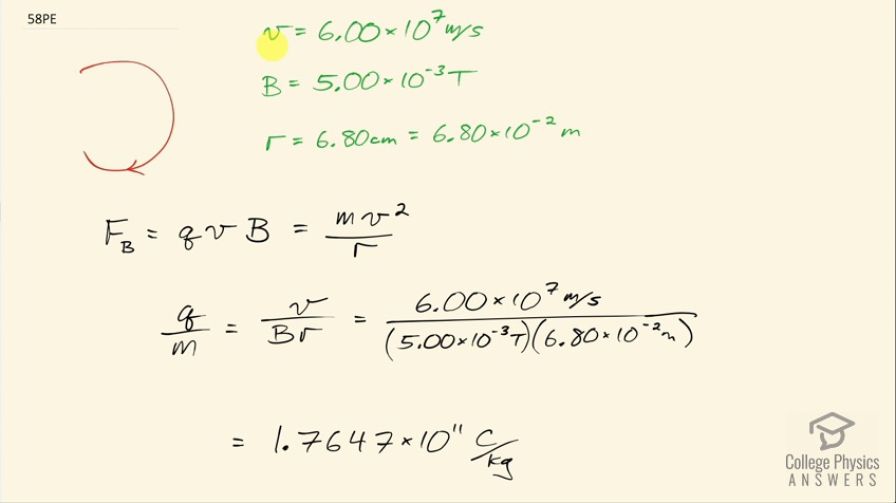 58PE
v = 6.00 × 10⁷ m/s
B = 5.00 × 10⁻³ T
r = 6.80 cm = 6.80 × 10⁻² m
F_B = q v B = m v² / r
q / m = v / B r = 6.00 × 10⁷ m/s / (5.00 × 10⁻³ T)(6.80 × 10⁻² m)
= 1.7647 × 10¹¹ C/kg
College Physics
ANSWERS